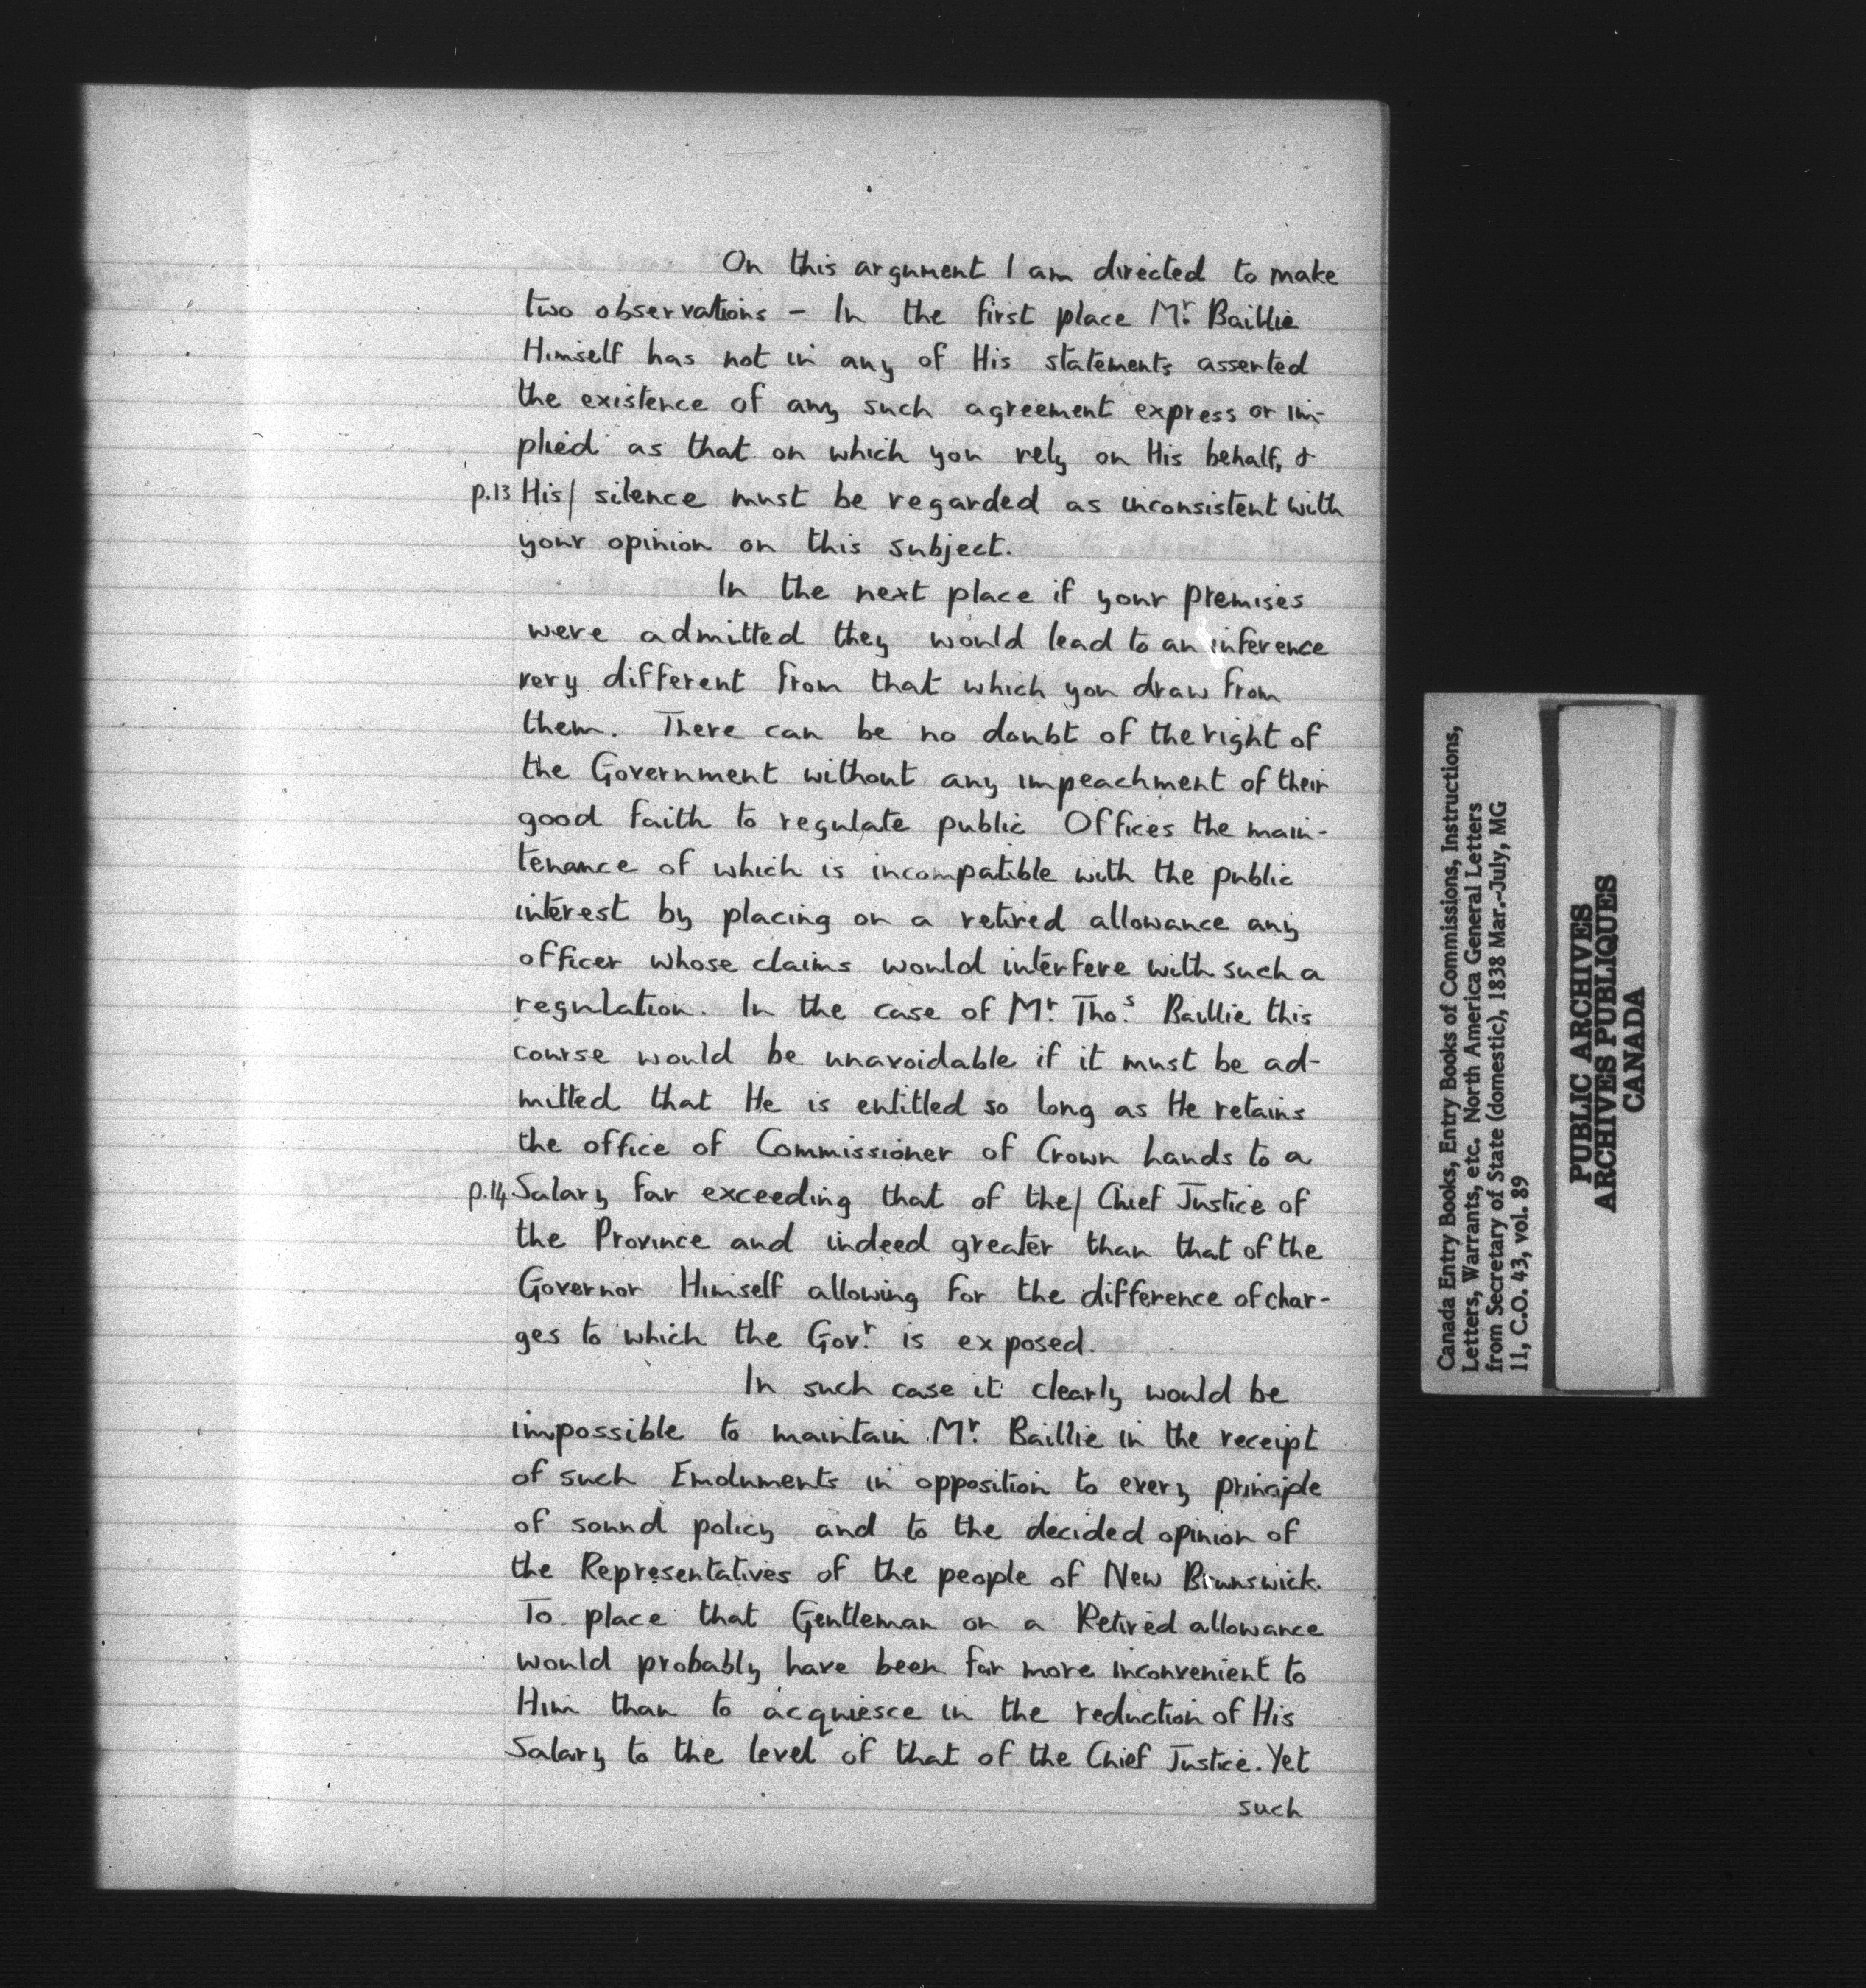 On this argument I am directed to make
two observations - In the first place Mr. Baillie
Himself has not in any of His statements asserted
the existence of any such agreement express or im-
plied as that on which you rely on His behalf, &
p.13 His/ silence must be regarded as inconsistent with
your opinion on this subject.
In the next place if your premises
were admitted they would lead to an inference
very different from that which you draw from
them. There can be no doubt of the right of
the Government without any impeachment of their
good faith to regulate public Offices the main-
tenance of which is incompatible with the public
interest by placing on a retired allowance any
officer whose claims would interfere with such a
regulation. In the case of Mr. Thos. Baillie this
course would be unavoidable if it must be ad-
mitted that He is entitled so long as He retains
the office of Commissioner of Crown Lands to a
p.14 Salary far exceeding that of the/ Chief Justice of
the Province and indeed greater than that of the
Governor Himself allowing for the difference of char-
ges to which the Govr. is exposed.
In such case it clearly would be
impossible to maintain Mr. Baillie in the receipt
of such Emoluments in opposition to every principle
of sound policy and to the decided opinion of
the Representatives of the people of New Brunswick.
To place that Gentleman on a Retired allowance
would probably have been far more inconvenient to
Him than to acquiesce in the reduction of His
Salary to the level of that of the Chief Justice. Yet
such
Canada Entry Books, Entry Books of Commissions, Instructions,
Letters, Warrants, etc. North America General Letters
from Secretary of State (domestic), 1838 Mar.-July, MG
11, C.O. 43, vol. 89
PUBLIC ARCHIVES
ARCHIVES PUBLIQUES
CANADA